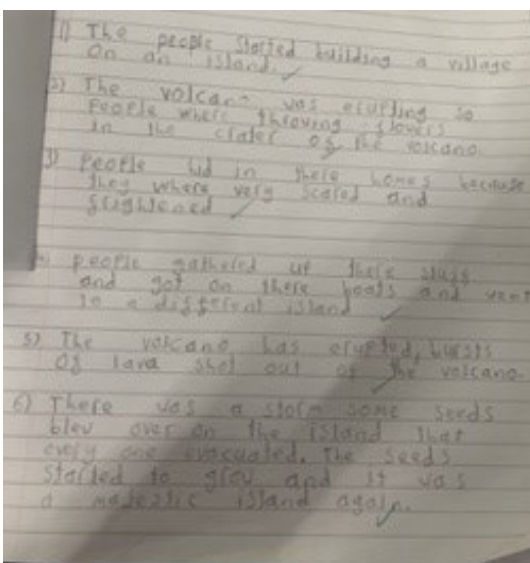 1) The people started building a village
on an island.
2) The volcano was erupting so
people where throwing flowers
in the crater of the volcano.
3) People hid in there homes because
they where very scared and
frightened
4) people gathered up there stuff
and got on there boats and went
to a different island
5) The volcano has erupted, bursts
of lava shot out of the volcano.
6) There was a storm some seeds
blew over on the island that
every one evacuated. The seeds
started to grow and it was
a majestic island again.